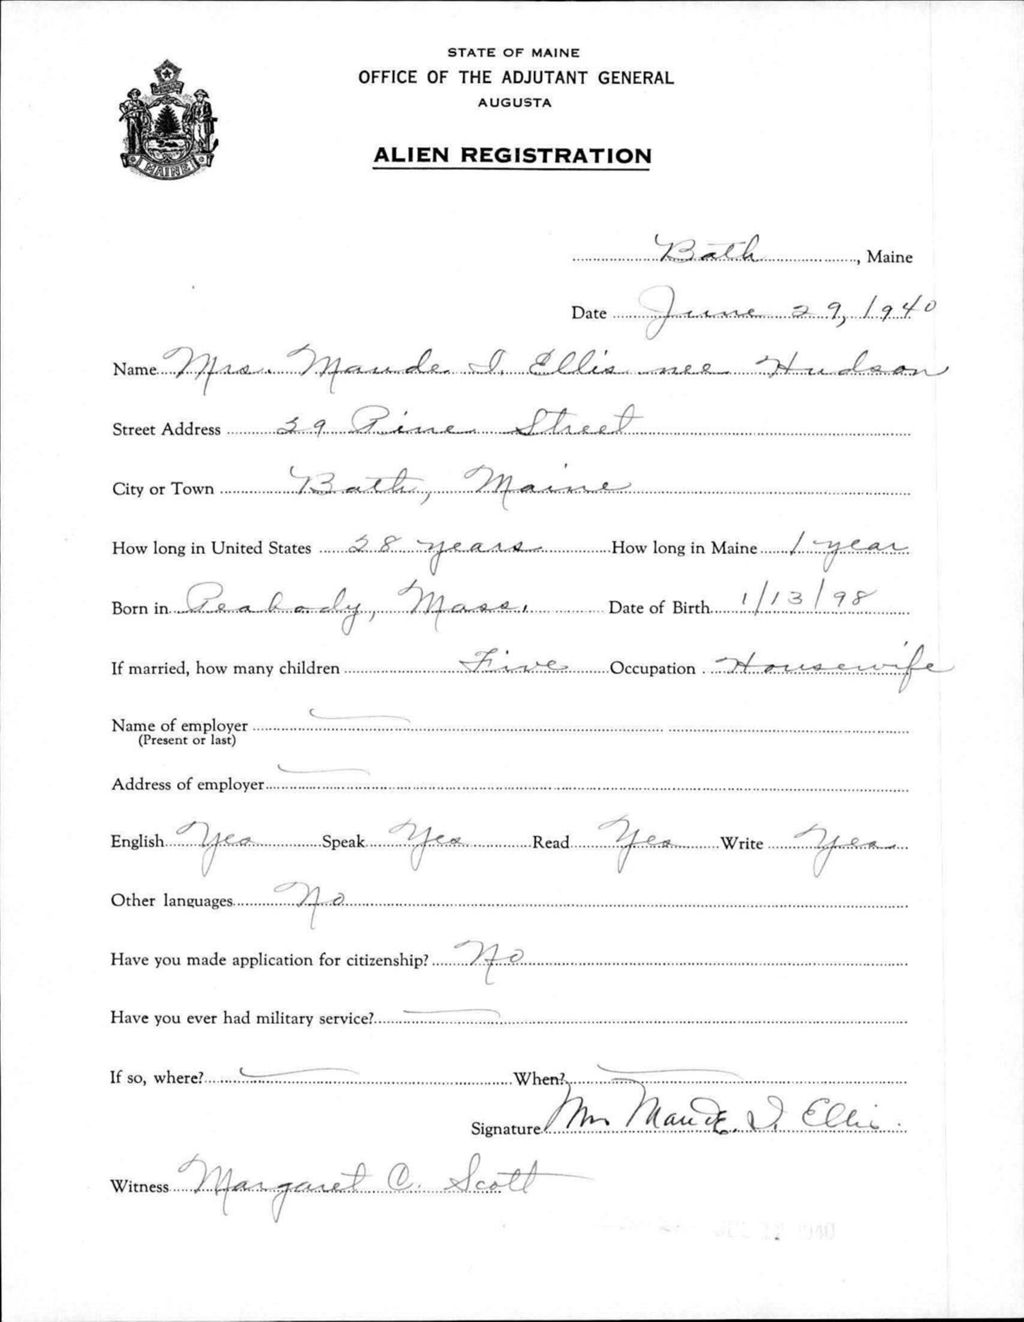 STATE OF MAINE
OFFICE OF THE ADJUTANT GENERAL
AUGUSTA
ALIEN REGISTRATION
MAINE
Bath, Maine
Date June 29, 1940
Name Mrs. Maude I. Ellis nee Hudson
Street Address 39 Pine Street
City or Town Bath, Maine
How long in United States 38 years How long in Maine 1 year
Born in Peabody, Mass. Date of Birth 1/13/98
If married, how many children Five Occupation Housewife
Name of employer
(Present or last)
Address of employer
English Yes Speak Yes Read Yes Write Yes
Other languages No
Have you made application for citizenship? No
Have you ever had military service?
If so, where? When?
Signature Mrs Maude I. Ellis.
Witness Margaret C. Scott